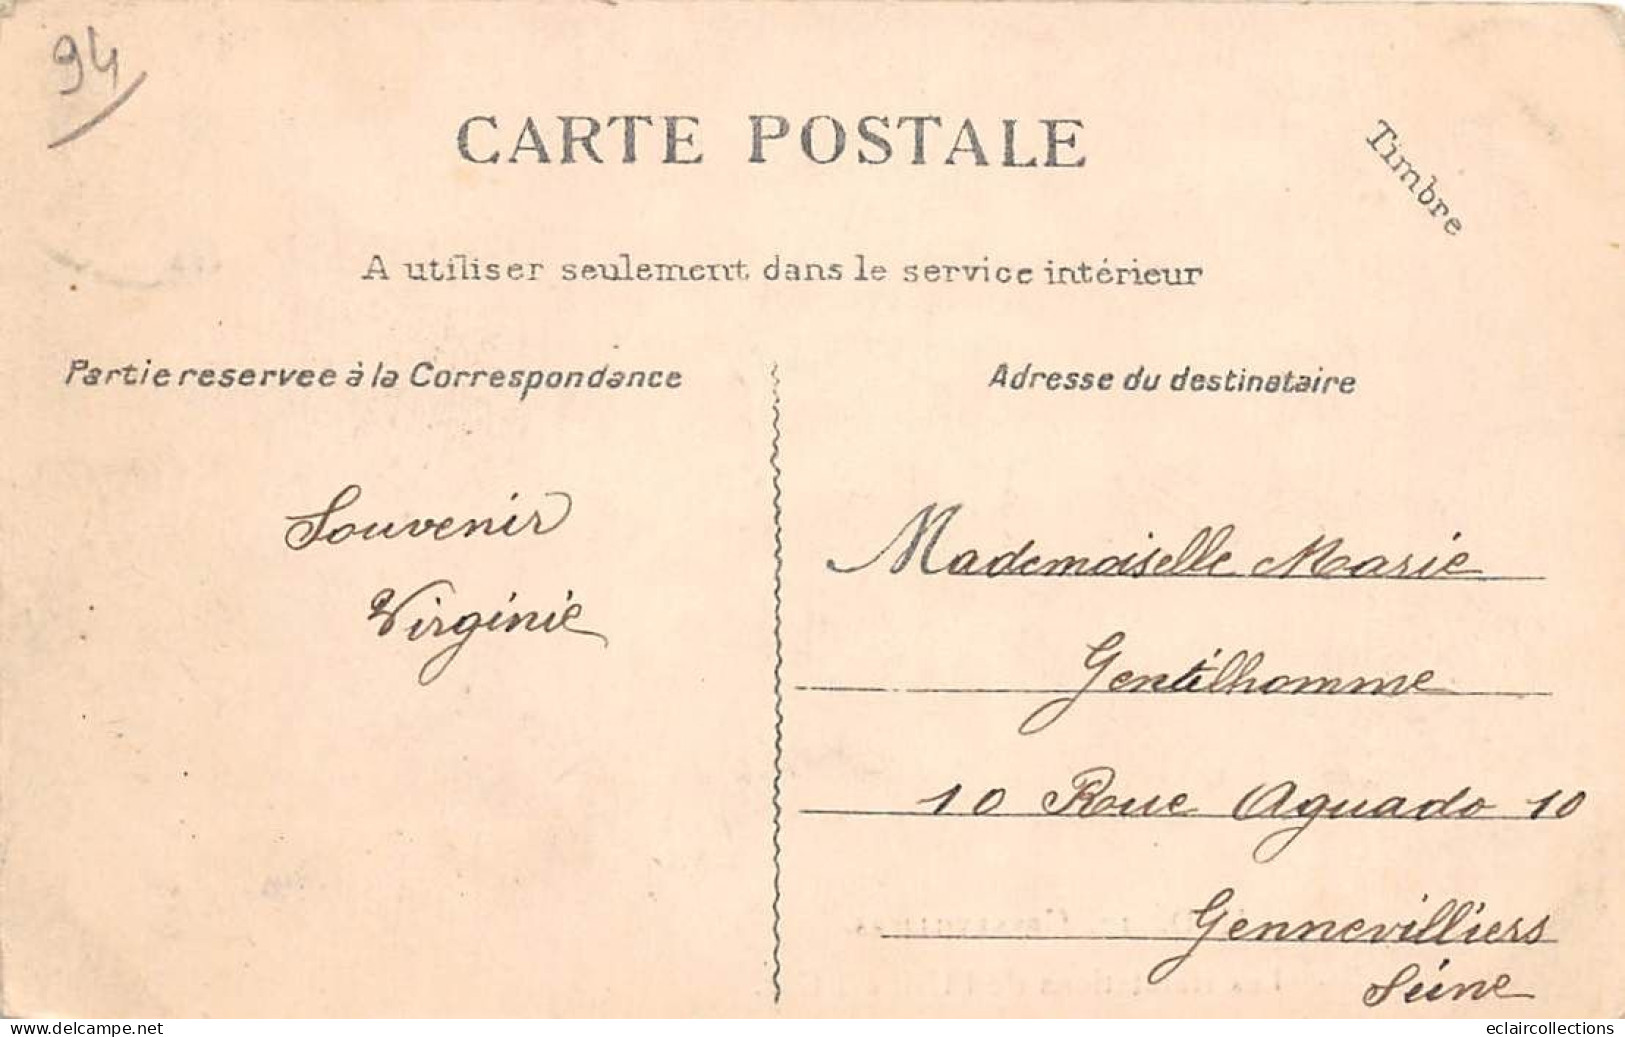 94
CARTE POSTALE
Timbre
A utiliser seulement dans le service intérieur
Partie reservee à la Correspondance
Adresse du destinataire
Souvenir
Virginie
Mademoiselle Marie
Gentilhomme
10 Rue Aguado 10
Gennevilliers
Seine
www.delcampe.net
eclaircollections